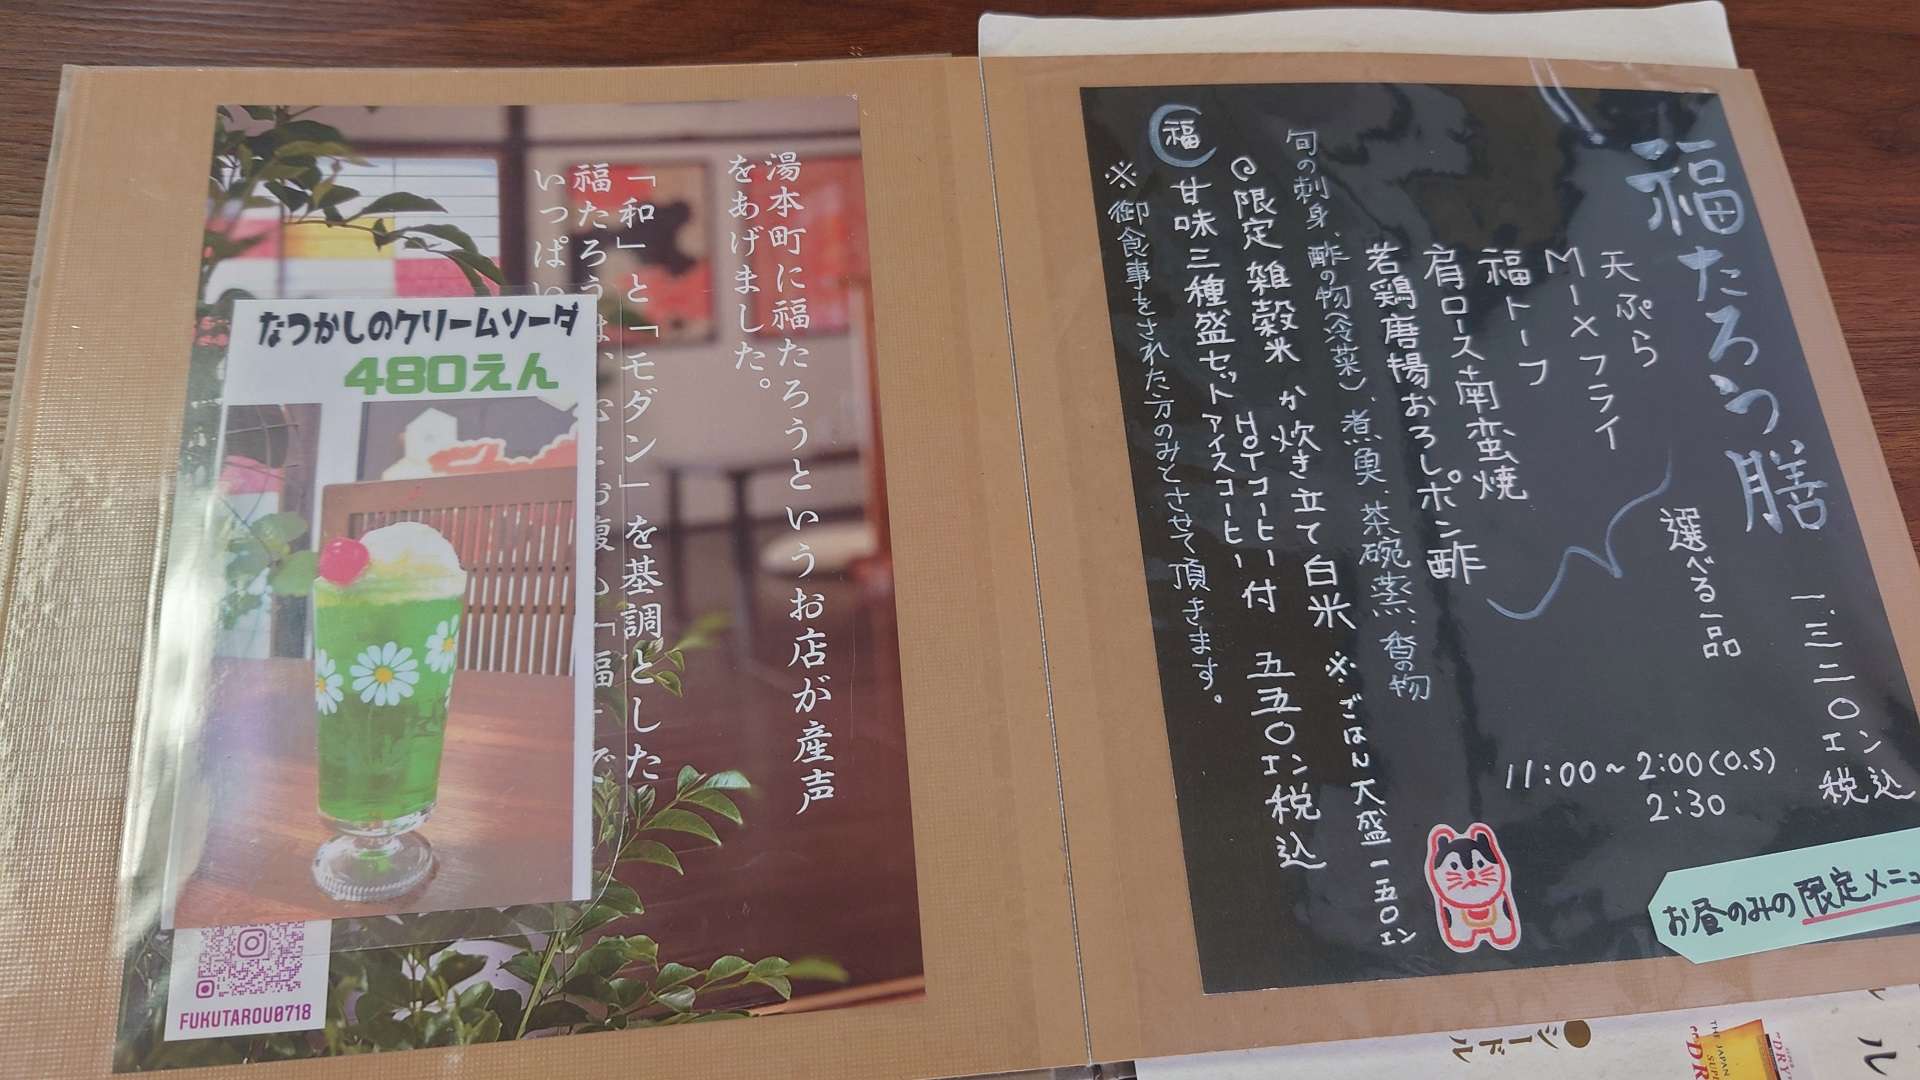 湯本町に福たろうというお店が産声
をあげました。
「和」と「モダン」を基調とした
福たろう
いっぱい
なつかしのクリームソーダ
480えん
FUKUTAROU0718
福たろう膳
一.三二〇エン税込
選べる一品
天ぷら
MIXフライ
福トーフ
肩ロース南蛮焼
若鶏唐揚おろしポン酢
旬の刺身、酢の物(冷菜)、煮魚、茶碗蒸、香の物
限定 雑穀米 か 炊き立て白米 ※ごはん大盛一五〇エン
福
甘味三種盛セット アイスコーヒー HOTコーヒー付 五五〇エン税込
※御食事をされた方のみとさせて頂きます。
11:00~2:00(O.S)
2:30
お昼のみの限定メニュ
シードル
ル